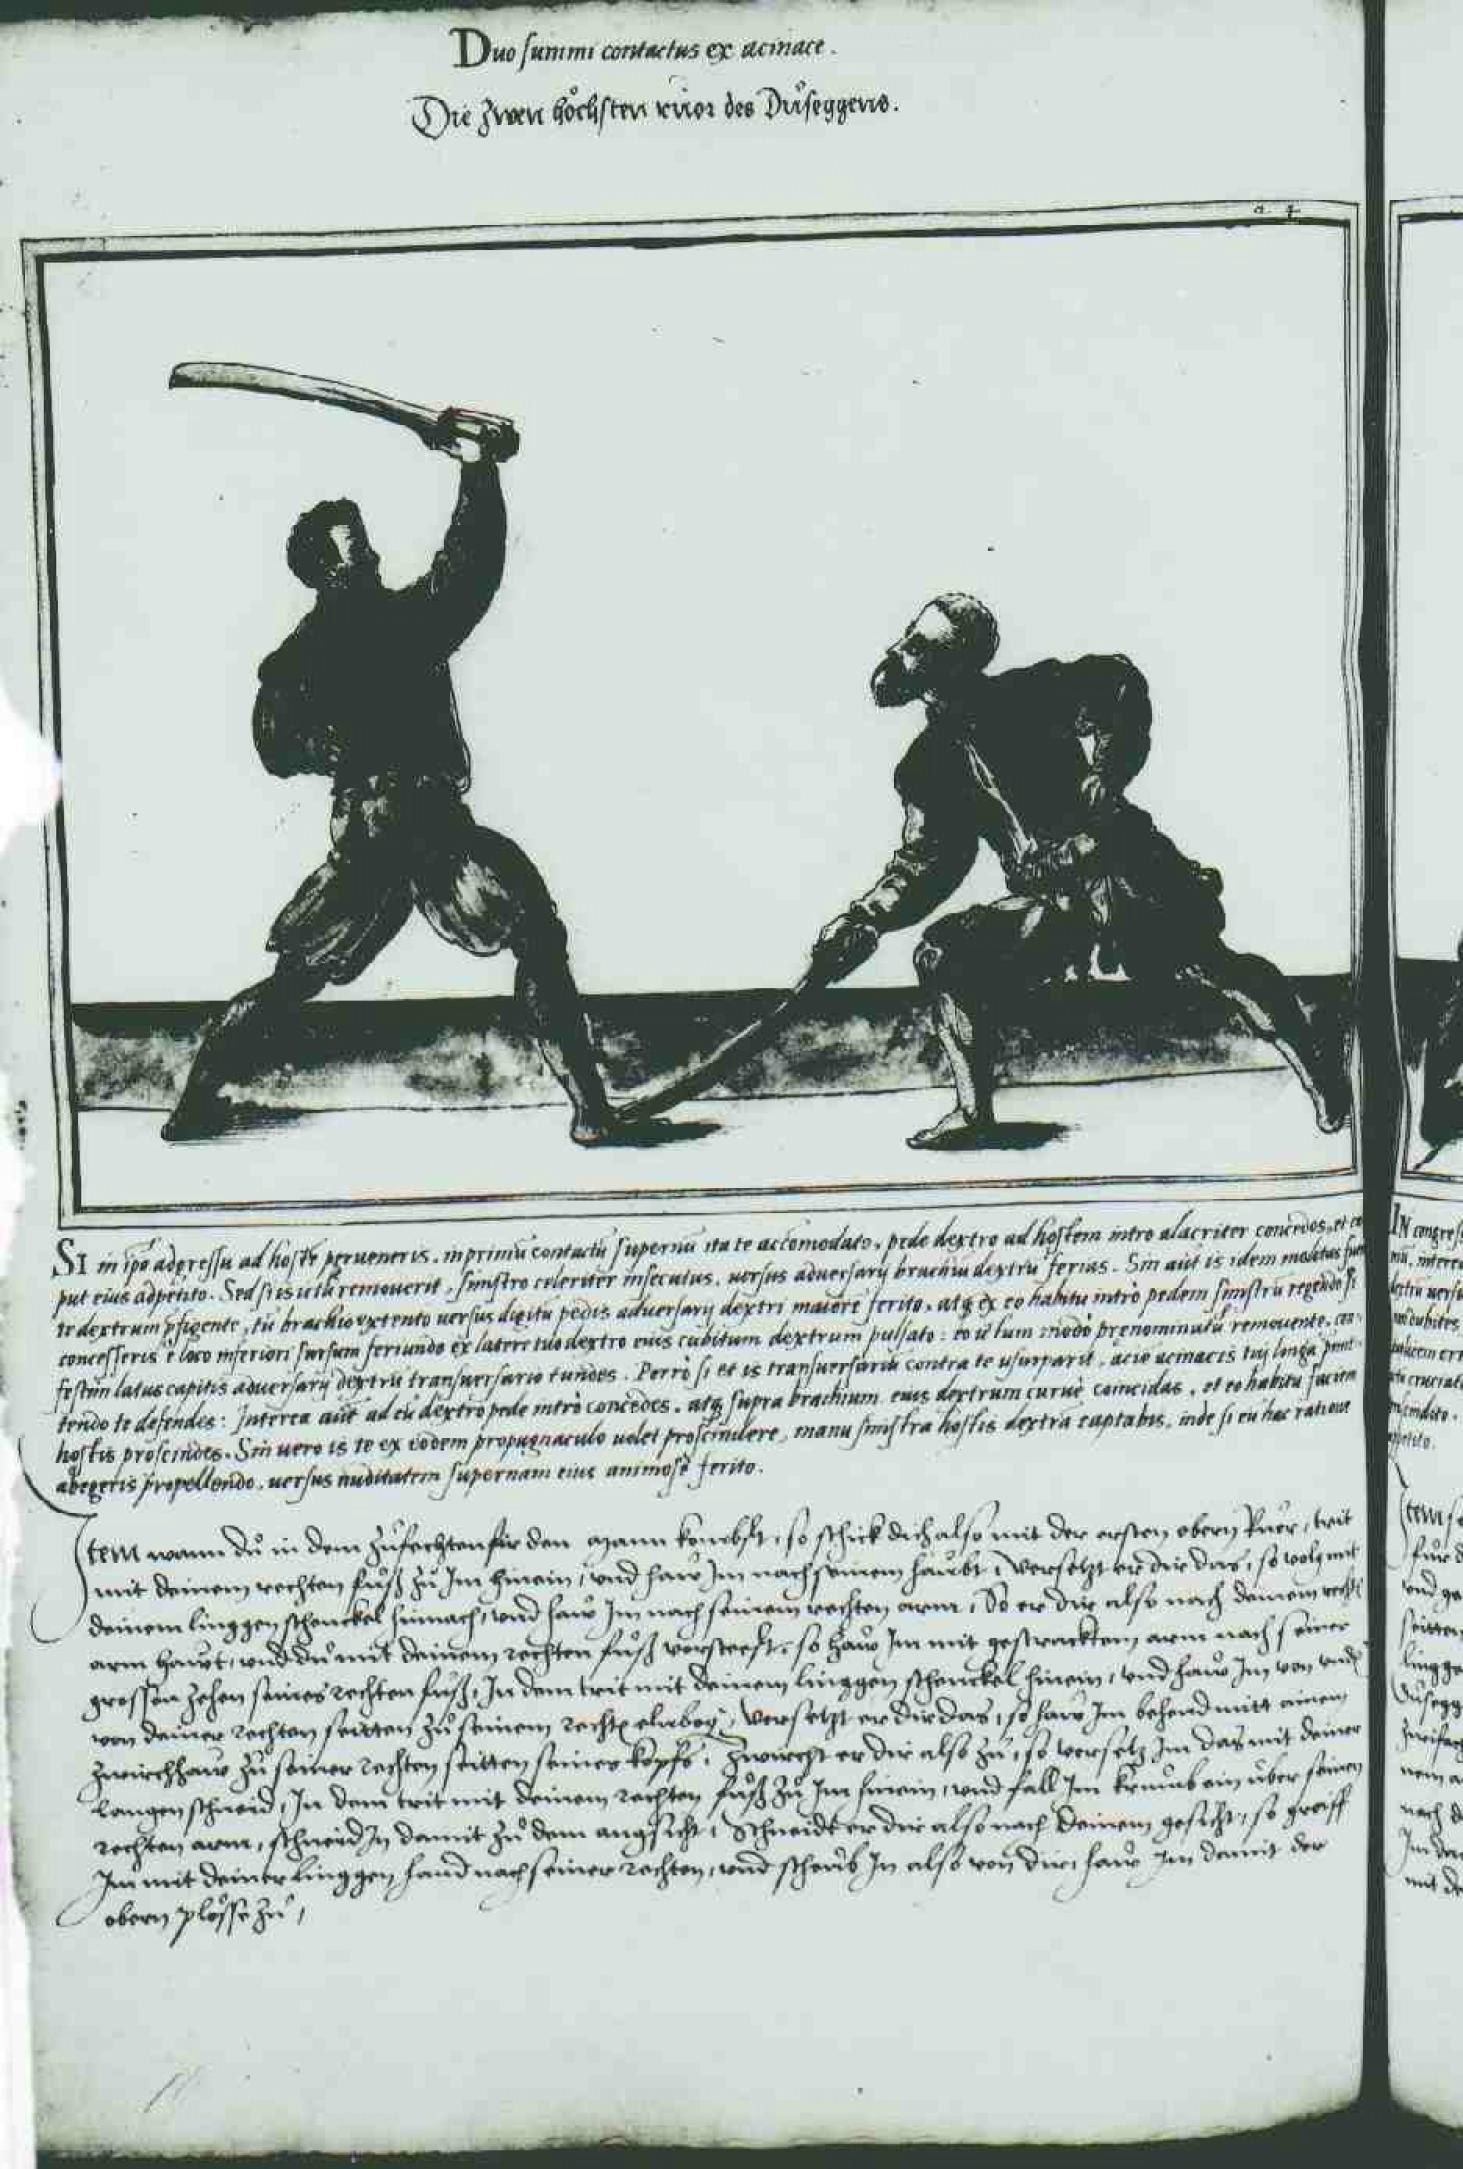 Duo summi contactus ex acinace.
Die Zwen höchsten rüor des Düseggens.
SI in ipo adgressu ad hoste perveneris, in primũ contactũ supernũ ita te accomodato, pede dextro ad hostem intro alacriter concedos, et ca
put eius adpetito. Sed si is ictũ removerit, sinistro celeriter insecutus, versus adversarij brachiũ dextrũ ferias. Sin aut is idem
te dextrum pfigente, tu brachio extento versus digitũ pedis adversarij dextri maiorẽ ferito, atq ex eo habitu intrò pedem sinistrũ regendo si
concesseris è loco inferiori sursum feriundo ex latere tuo dextro eius cubitum dextrum pulsato: eo removente, con-
festim latus capitis adversarij dextrũ transversario tundes. Porrò si et is transversariũ contra te usurparit, acie acinacis tui longa
tendo te defendes: Interea aut ad eũ dextro pede intrò concedes, atq supra brachium eius dextrum curvè coincidas, et eo habitu faciem
hostis proscindes. Sin vero is te ex eodem propugnaculo volet proscindere, manu sinistra hostis dextrã captabis, inde si eũ hac ratione
abegeris propellendo, versus nuditatem supernam eius animosè ferito.
Item wann dũ in dem zũfechten für den mann kombst, so schick dich also mit der ersten obern Rũer, trit
mit deinem rechten fũß zũ Im hinein, und haw Im nach seinem haubt, versetzt er dir das, so volg mit
deinem linggen schenckel hinnach, und haw Im nach seinem rechten arm, So er dir also nach deinem
arm hawt, und dũ mit deinem rechten fũß vorsteest, so haw Im mit gestracktem arm nach seiner
grossen zehen seines rechten fũß, In dem trit mit deinem linggen schenckel hinein, und haw Im von
von deiner rechten seitten zũ seinem elnbog, versetzt er dir das, so haw Im behend mitt einem
zwirchhaw zũ seiner rechten seitten seines kopfs, zwircht er dir also zũ, so versetz Im das mit deiner
langen schneid, In dem trit mit deinem rechten fũß zũ Im hinein, und fall Im krumb ein über seinen
rechten arm, schneid In damit zũ dem angsicht, Schneidt er dir also nach deinem gesicht, so greiff
Im mit deiner linggen hand nach seiner rechten, und scheub In also von dir, haw Im damit der
obern plösse zũ,